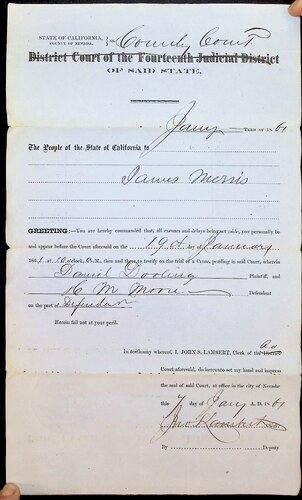 STATE OF CALIFORNIA, } ss. County Court
COUNTY OF NEVADA.
District Court of the Fourteenth Judicial District
OF SAID STATE.
Jany TERM OF 1861
The People of the State of California to
James Merris
GREETING:—You are hereby commanded that, all excuses and delays being set aside, you personally be
and appear before the Court aforesaid on the 19th day of January
1861, at 10 o'clock, A.M., then and there to testify on the trial of a Cause, pending in said Court, wherein
Daniel Dooling Plaintiff and
H M Moore Defendant
on the part of Defendant
Herein fail not at your peril.
In testimony whereof, I, JOHN S. LAMBERT, Clerk of the District
Court aforesaid, do hereunto set my hand and impress
the seal of said Court, at office in the city of Nevada
this 7 day of Jany A. D. 1861
Jno S Lambert Clerk
By Deputy